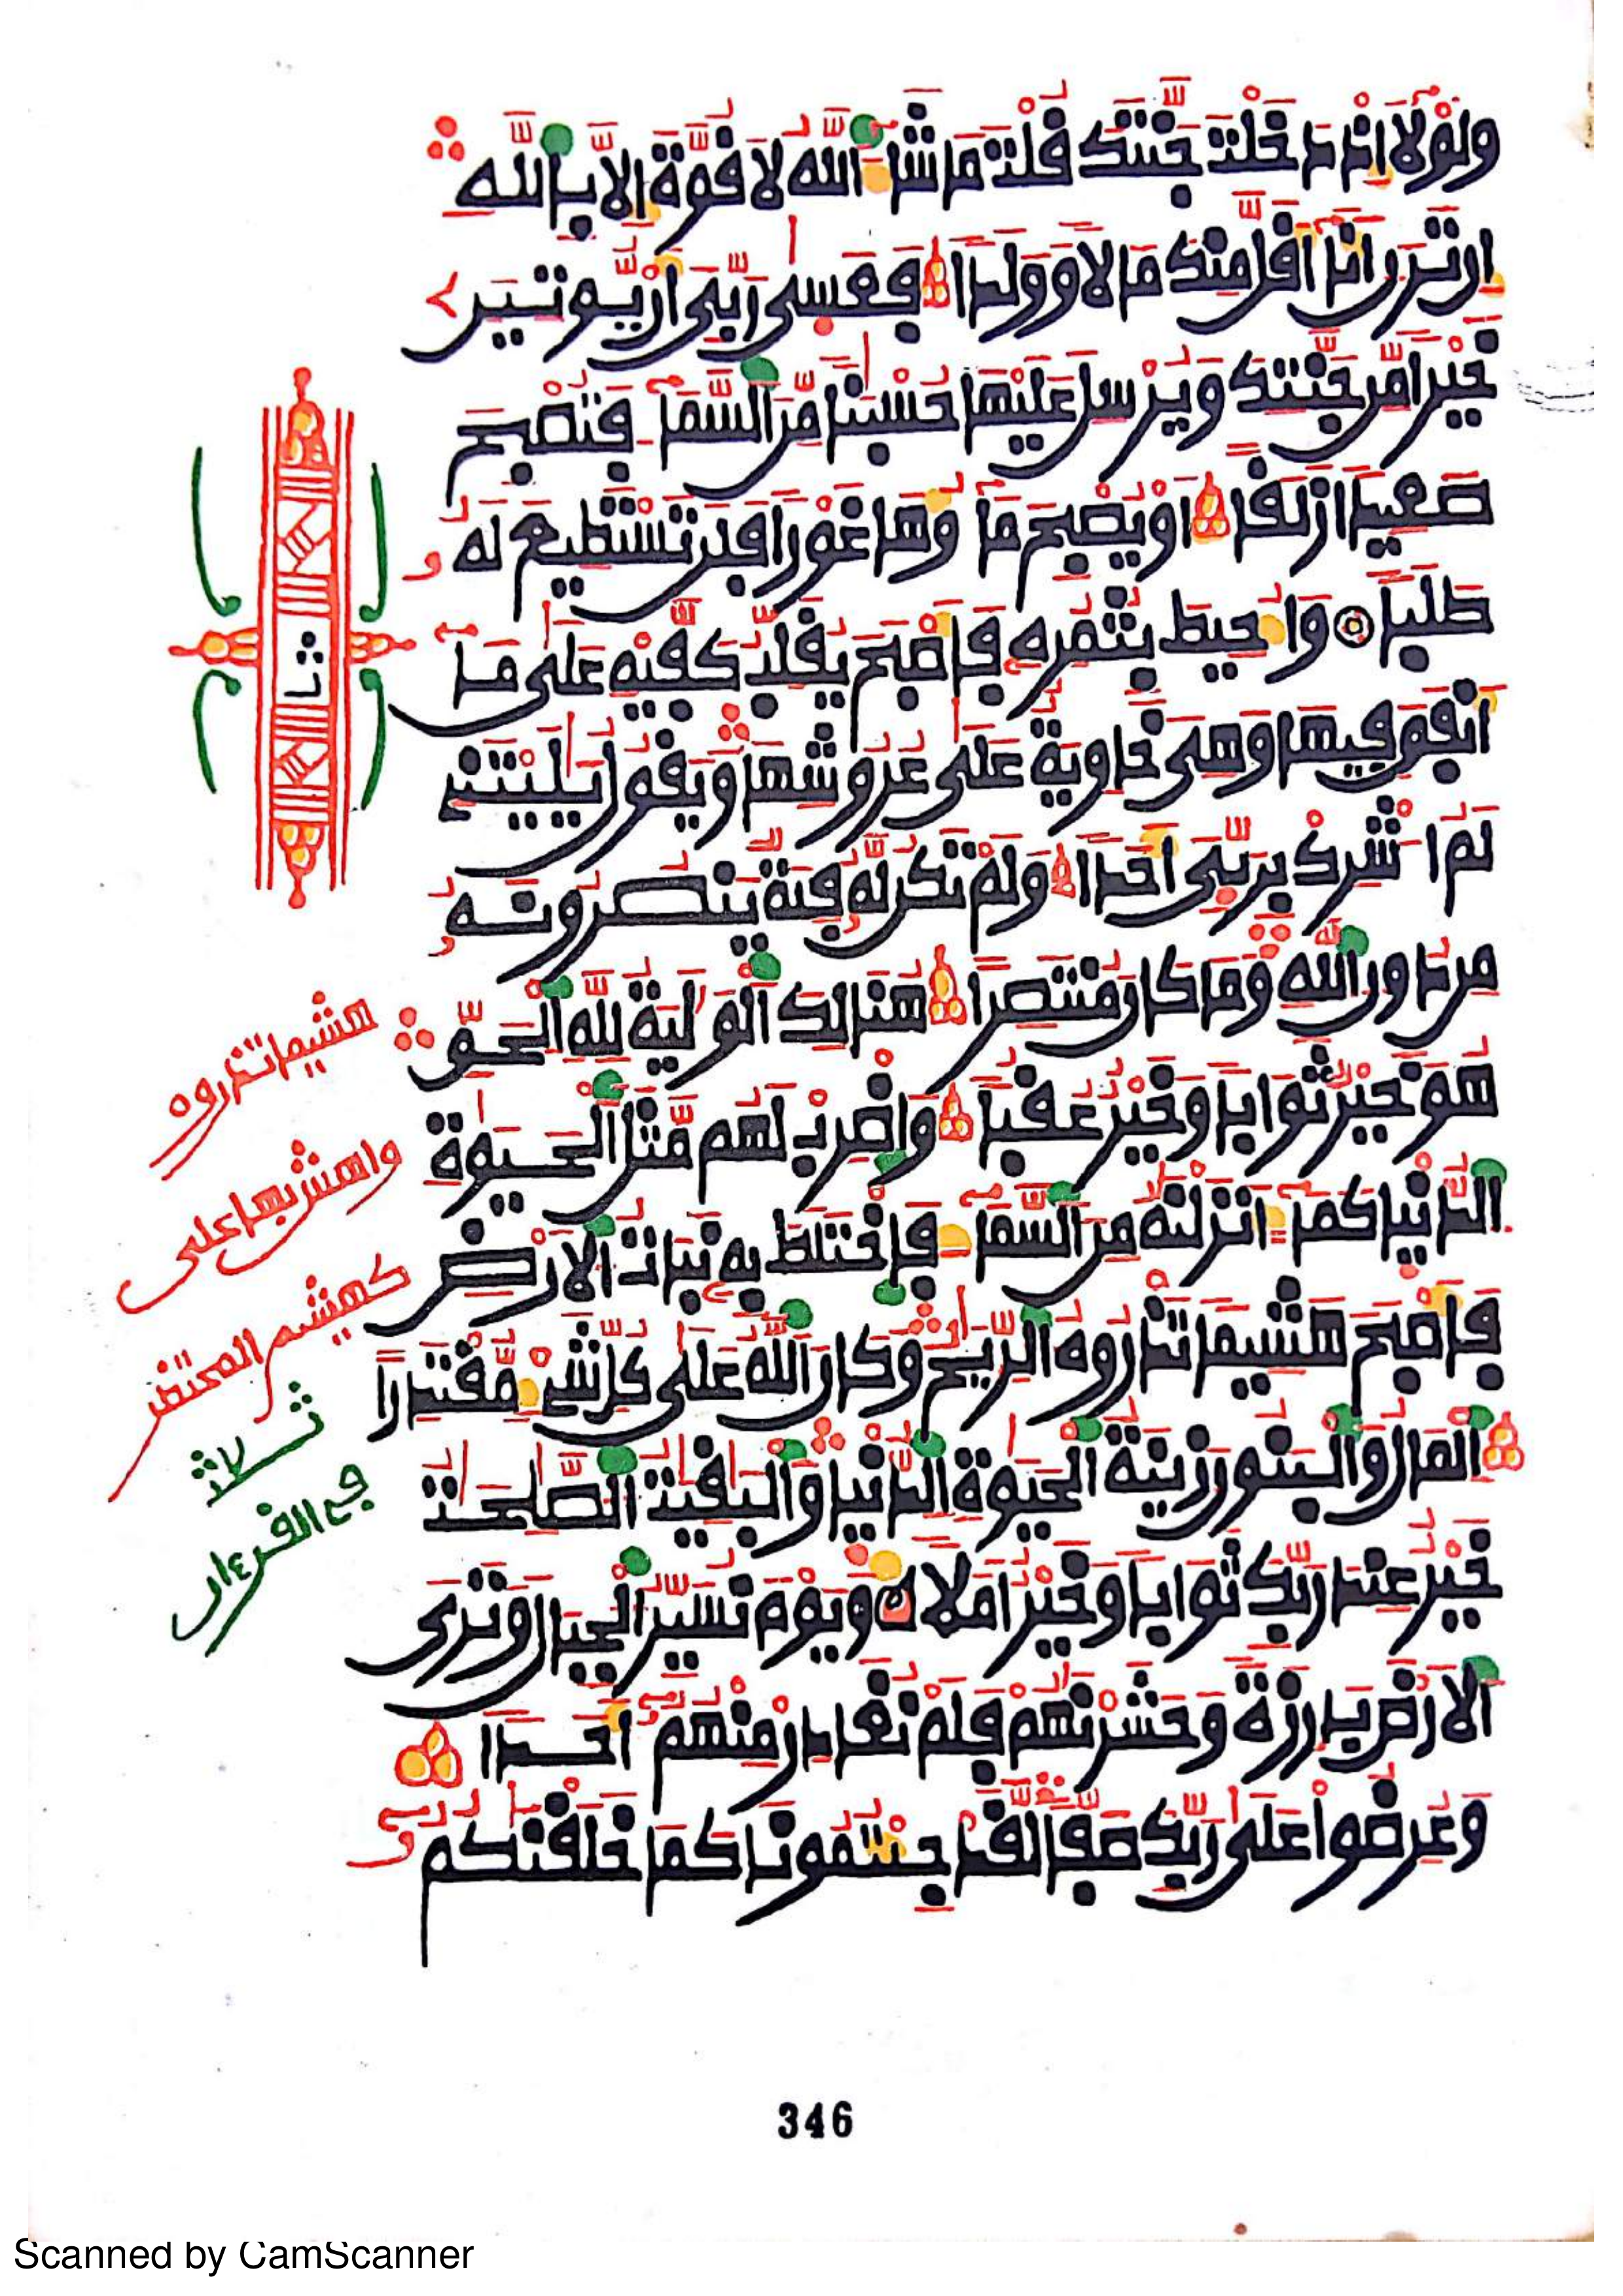 ولولا إذ دخلت جنتك قلت ما شاء الله لا قوة إلا بالله
إن ترن أنا أقل منك مالا وولدا فعسى ربي أن يوتين
خيرا من جنتك ويرسل عليها حسبنا من السماء فتصبح
صعيدا زلقا أو يصبح ماؤها غورا فلن تستطيع له
طلبا وأحيط بثمره فأصبح يقلب كفيه على ما
أنفق فيها وهي خاوية على عروشها ويقول يليتني
لم أشرك بربي أحدا ولم تكن له فئة ينصرونه
من دون الله وما كان منتصرا هنالك الولية لله الحق
هو خير ثوابا وخير عقبا واضرب لهم مثل الحيوة
الدنيا كماء انزلنه من السماء فاختلط به نبات الارض
فأصبح هشيما تذروه الريح وكان الله على كل شيء مقتدرا
المال والبنون زينة الحيوة الدنيا والبقيت الصلحت
خير عند ربك ثوابا وخير أملا ويوم نسير الجبال وترى
الارض بارزة وحشرنهم فلم نغادر منهم أحدا
وعرضوا على ربك صفا لقد جئتمونا كما خلقنكم
ثمن
هشيما تذروه
واهش بها على
كهشيم المحتظر
ثلاث
في القرءان
346
Scanned by CamScanner